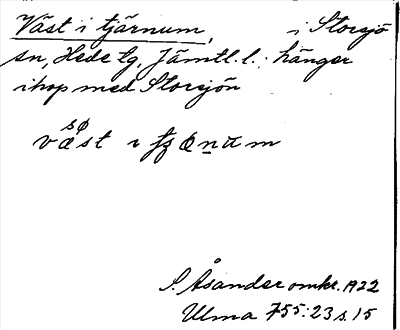 Väst i tjärnum, i Storsjö
sn, Hede tg, Jämtl. l.; hänger
ihop med Storsjön
sø
væst i
S. Åsander omkr. 1922
Ulma 755:23 s. 15